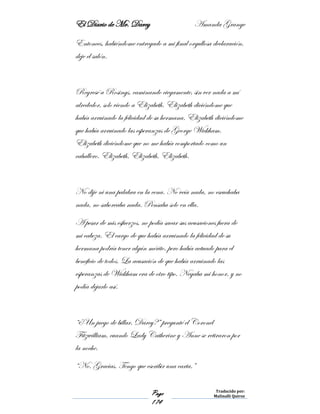 El Diario de Mr. Darcy Amanda Grange
Entonces, habiéndome entregado a mi final orgullosa declaración,
deje el salón.
Regresé a Rosings, caminando ciegamente, sin ver nada a mí
alrededor, solo viendo a Elizabeth. Elizabeth diciéndome que
había arruinado la felicidad de su hermana. Elizabeth diciéndome
que había arruinado las esperanzas de George Wickham.
Elizabeth diciéndome que no me había comportado como un
caballero. Elizabeth, Elizabeth, Elizabeth.
No dije ni una palabra en la cena. No veía nada, no escuchaba
nada, no saboreaba nada. Pensaba solo en ella.
A pesar de mis esfuerzos, no podía sacar sus acusaciones fuera de
mi cabeza. El cargo de que había arruinado la felicidad de su
hermana podría tener algún mérito, pero había actuado para el
beneficio de todos. La acusación de que había arruinado las
esperanzas de Wickham era de otro tipo. Negaba mi honor, y no
podía dejarlo así.
“¿Un juego de billar, Darcy?” preguntó el Coronel
Fitzwilliam, cuando Lady Catherine y Anne se retiraron por
la noche.
“No. Gracias. Tengo que escribir una carta.”
Page
174
Traducido por:
Malinalli Quiroz